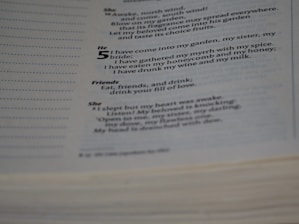 She
Awake, north wind,
and come, south wind!
Blow on my garden,
that its fragrance may spread everywhere.
Let my beloved come into his garden
and taste its choice fruits.
He
5 I have come into my garden, my sister, my
bride;
I have gathered my myrrh with my spice.
I have eaten my honeycomb and my honey;
I have drunk my wine and my milk.
Friends
Eat, friends, and drink;
drink your fill of love.
She
I slept but my heart was awake.
Listen! My beloved is knocking:
"Open to me, my sister, my darling,
my dove, my flawless one.
My head is drenched with dew,